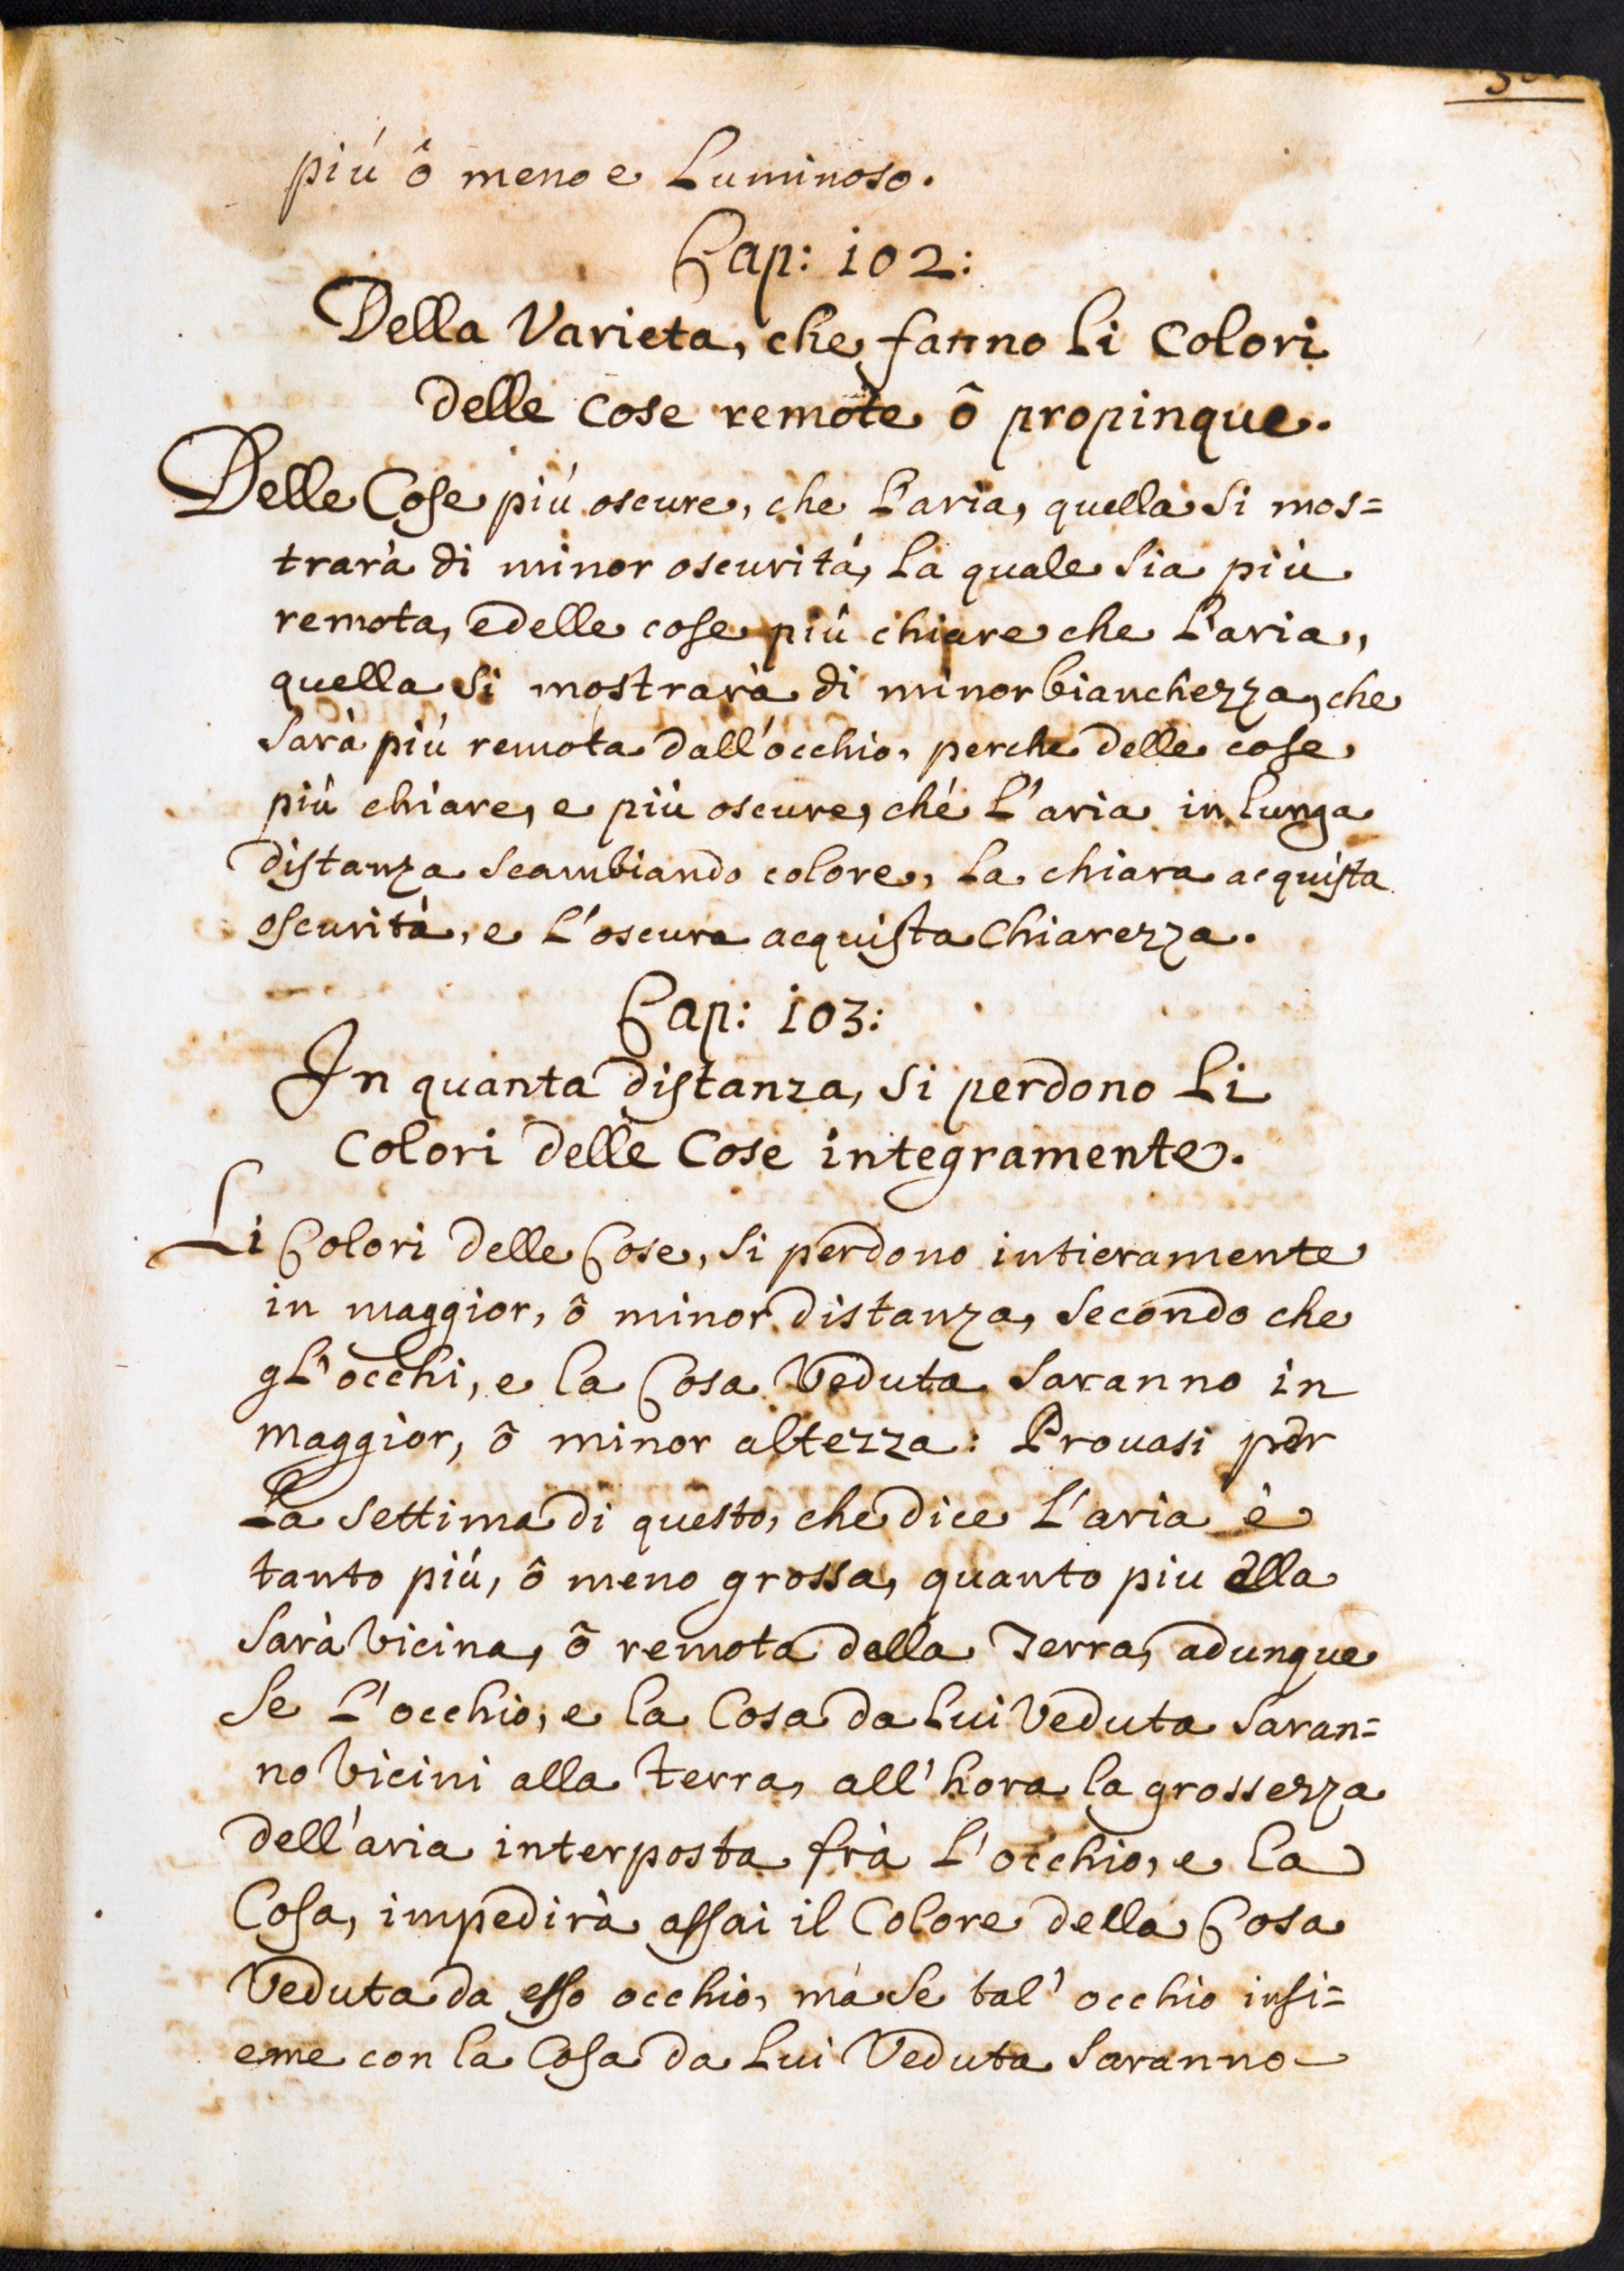 più ô meno e Luminoso.
Cap: 102:
Della Varieta, che fanno li Colori
delle Cose remote ô propinque.
Delle Cose più oscure, che l'aria, quella si mos=
trarà di minor oscurità, la quale sia più
remota, e delle cose più chiare che l'aria,
quella si mostrarà di minor bianchezza, che
sarà più remota dall'occhio, perche delle cose
più chiare, e più oscure, ché l'aria in lunga
distanza scambiando colore, la chiara acquista
oscurità, e l'oscura acquista Chiarezza.
Cap: 103:
In quanta distanza, si perdono li
Colori delle Cose integramente.
Li Colori delle Cose, si perdono intieramente
in maggior, ô minor distanza, secondo che
gl'occhi, e la Cosa Veduta saranno in
maggior, ô minor altezza: Prouasi per
La settima di questo, che dice l'aria è
tanto più, ô meno grossa, quanto piu ella
sarà vicina, ô remota della Terra, adunque
se l'occhio, e la Cosa da lui Veduta saran=
no vicini alla terra, all'hora la grossezza
dell'aria interposta frà l'occhio, e la
Cosa, impedirà assai il Colore della Cosa
Veduta da esso occhio, mà se tal' occhio insi=
eme con la Cosa da lui Veduta saranno